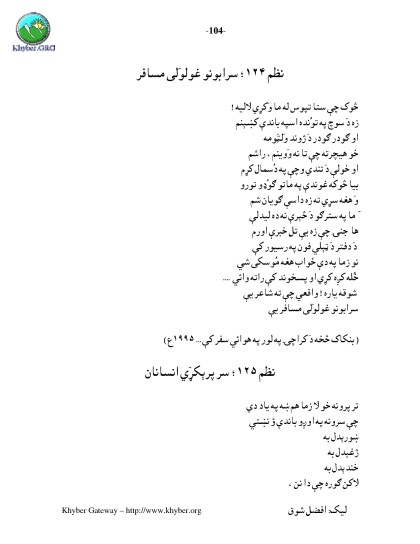 -104-
Khyber.ORG
نظم ۱۲۴ ؛ سرابونو غولولی مسافر
څوک چې ستا تپوس له ما وکړي لاليه !
زه د سوچ په توُنده اسپه باندې کښېنم
او ګودر ګودر د ژوند ولټومه
خو هيچرته چې تا نه ووينم ، راشم
او خولې د تندي وچې په دُسمال کړم
بيا څوکه غوندې په ماتو ګوډو تورو
وهغه سړي ته زه داسې ګويان شم
َ ما په سترګو د څبرې نه ده ليدلې
ها جنۍ چې زه يې تل خبرې اورم
د دفتر د ټيلي فون په رسيور کې
نو زما په دې ځواب هغه مُوسکی شي
ځله کږه کړي او پسخوند کې راته وائي ....
شوقه ياره ! واقعي چې ته شاعر يې
سرابونو غولولی مسافر يې
( بنکاک څخه د کراچۍ په لور په هوائي سفر کې... ۱۹۹۵ع )
نظم ۱۲۵ ؛ سر پرېکړي انسانان
تر پرونه خو لا زما هم ښه په ياد دي
چې سرونه په اوږو باندې وُ نښتي
ښورېدل به
ژغېدل به
خندېدل به
لاکن ګوره چې دا نن ،
Khyber Gateway – http://www.khyber.org
ليک: افضل شوق